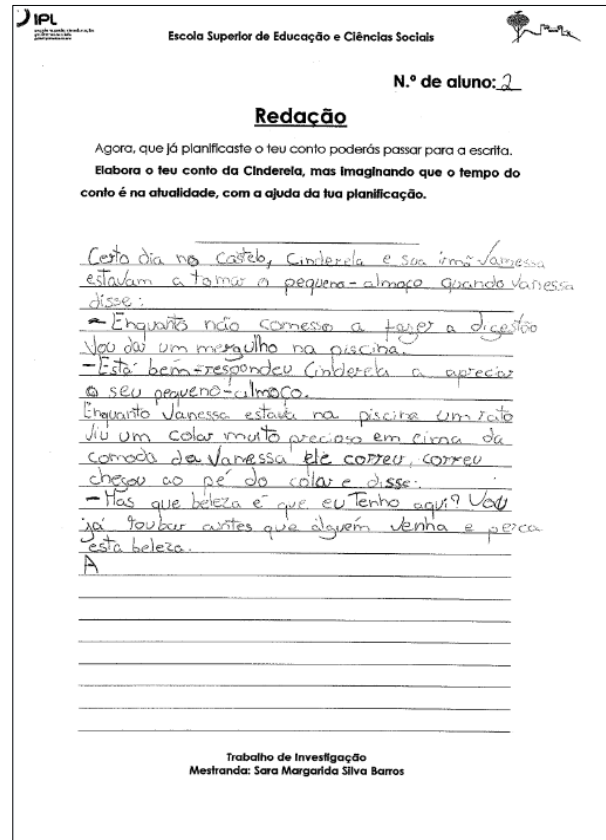 IPL
Escola Superior de Educação e Ciências Sociais
N.º de aluno: 2
Redação
Agora, que já planificaste o teu conto poderás passar para a escrita.
Elabora o teu conto da Cinderela, mas imaginando que o tempo do
conto é na atualidade, com a ajuda da tua planificação.
Certo dia no castelo, Cinderela e sua irmã Vanessa
estavam a tomar o pequeno-almoço quando Vanessa
disse:
- Enquanto não comesso a fazer a digestão
Vou dar um mergulho na piscina.
- Está bem - respondeu Cinderela a apreciar
o seu pequeno-almoço.
Enquanto Vanessa estava na piscina um rato
viu um colar muito precioso em cima da
comoda da Vanessa ele correu, correu
chegou ao pé do colar e disse:
- Mas que beleza é que eu tenho aqui? Vou
já roubar antes que alguém venha e perca
esta beleza.
A
Trabalho de Investigação
Mestranda: Sara Margarida Silva Barros